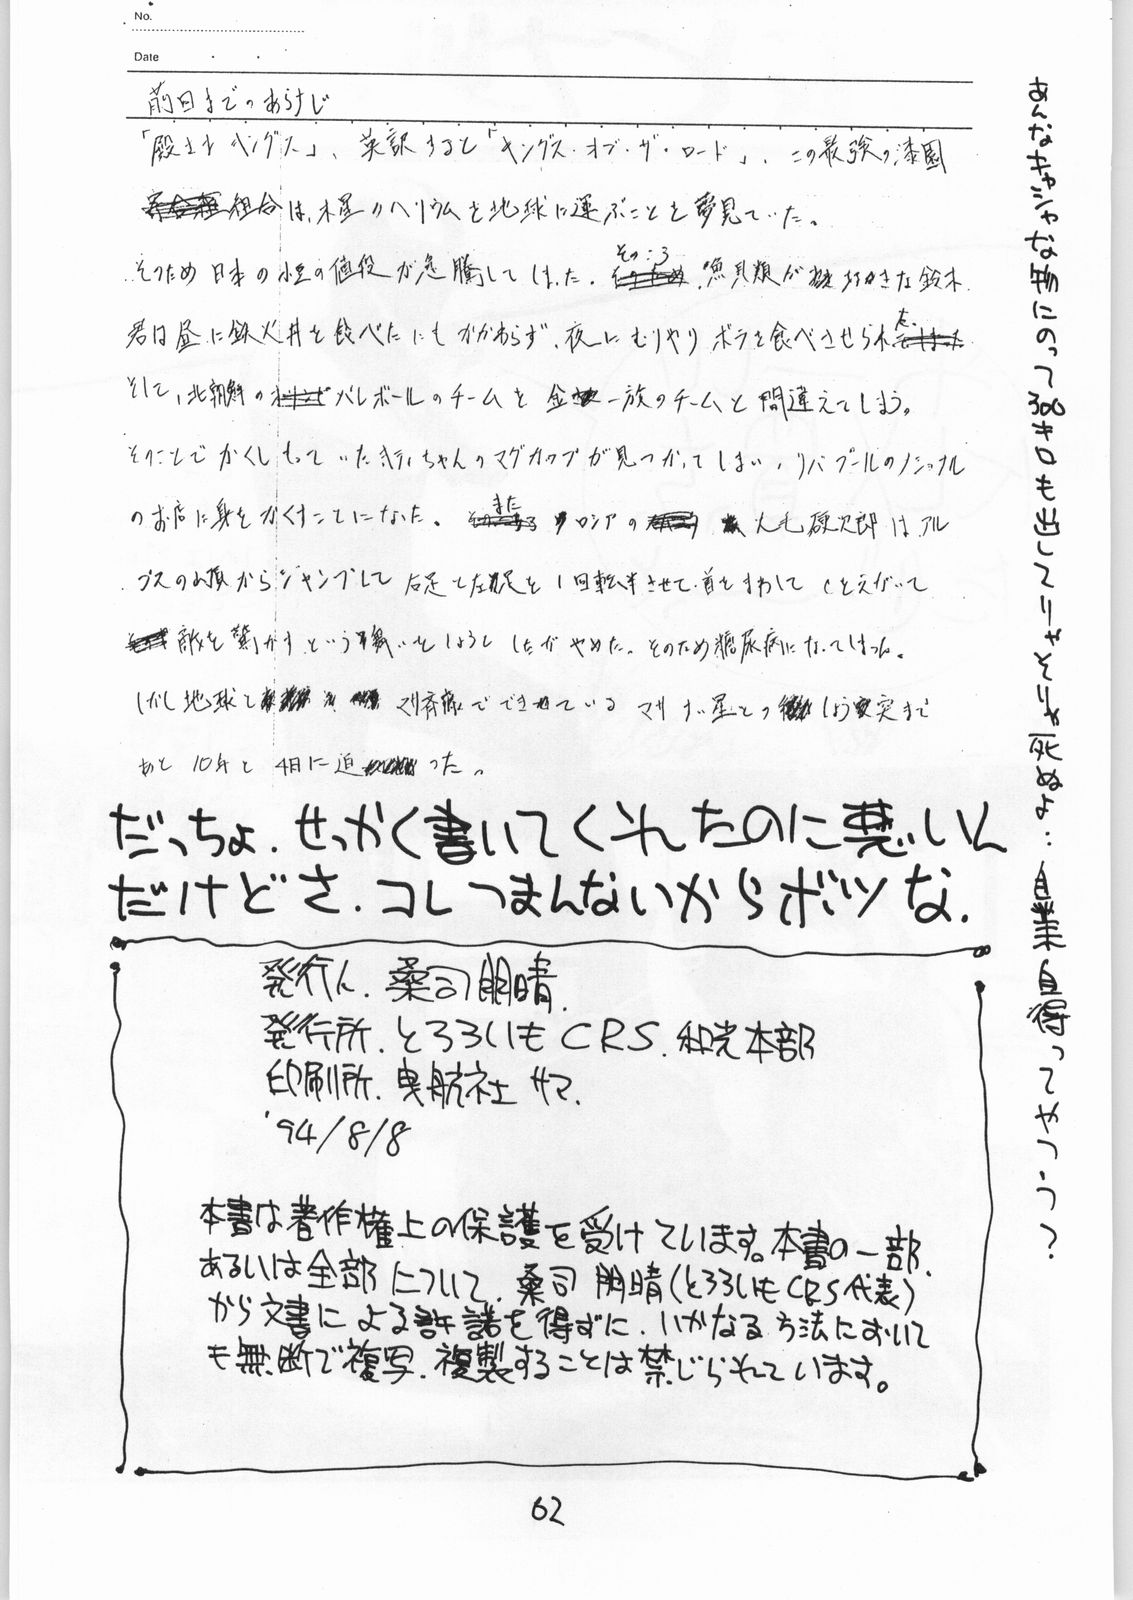 No.
Date
前回までのあらすじ
「殿さまキングス」、英訳すると「キングス・オブ・ザ・ロード」、この最強の漆園
組合は、木星のヘリウムを地球に運ぶことを夢見ていた。
そのため日本の小豆の値段が急騰してしまった。そのころ、魚貝類が好きな鈴木
君は昼に鉄火丼を食べたにもかかわらず、夜にむりやりボラを食べさせられた。
そして、北朝鮮のバレーボールのチームを金一族のチームと間違えてしまう。
そのことでかくしもっていたキティちゃんのマグカップが見つかってしまい、リバプールの
のお店に身をかくすことになった。また ロシアの 大毛硬次郎はアル
プスの山頂からジャンプして右足と左足を1回転半させて、首をまわして を
敵を驚かすという をしようとしたがやめた。そのため糖尿病になってしまった。
しかし地球と でできている マサ い星との しょう突まで
あと10年と4日に迫った。
だっちょ、せっかく書いてくれたのに悪いん
だけどさ、コレつまんないからボツな.
あんなキャシャな物にのって300キロも出してりゃそりゃ死ぬよ‥自業自得ってやつう?
発行人. 桑司 朋晴.
発行所. とろろいもCRS. 和光本部
印刷所. 曳航社サマ.
'94/8/8
本書は著作権上の保護を受けています。本書の一部、
あるいは全部について、桑司 朋晴(とろろいもCRS代表)
から文書による許諾を得ずに、いかなる方法において
も無断で複写、複製することは禁じられています。
62